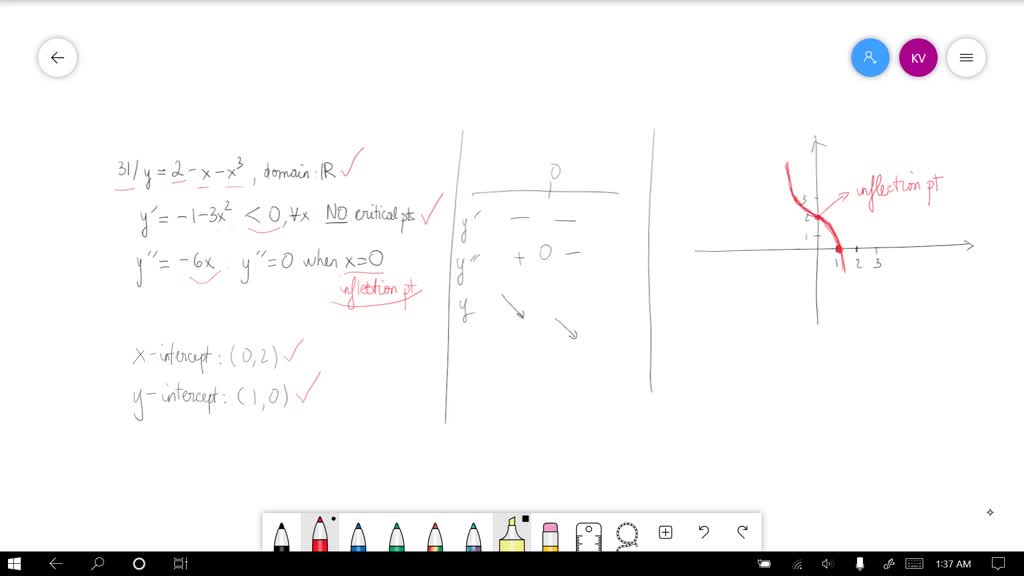 KV
31/ y = 2 - x - x³, domain: ℝ
y' = -1 - 3x² < 0, ∀x NO critical pts
y'' = -6x y'' = 0 when x = 0
inflection pt
x-intercept: (0,2)
y-intercept: (1,0)
0
y' - -
y'' + 0 -
y
inflection pt
3
2
1
1 2 3
1:37 AM